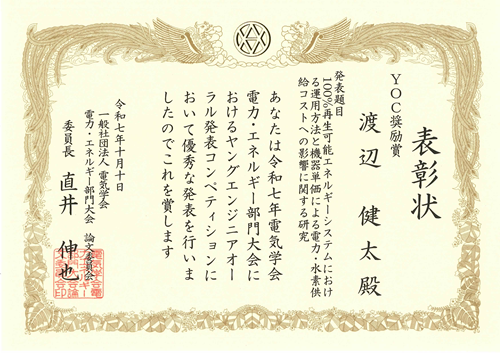 表彰状
YOC奨励賞
渡辺 健太殿
発表題目
100%再生可能エネルギーシステムにおけ
る運用方法と機器単価による電力・水素供
給コストへの影響に関する研究
あなたは令和七年電気学会
電力・エネルギー部門大会に
おけるヤングエンジニアオー
ラル発表コンペティションに
おいて優秀な発表を行いま
したのでこれを賞します
令和七年十月十日
一般社団法人 電気学会
電力・エネルギー部門大会 論文委員会
委員長 直井 伸也